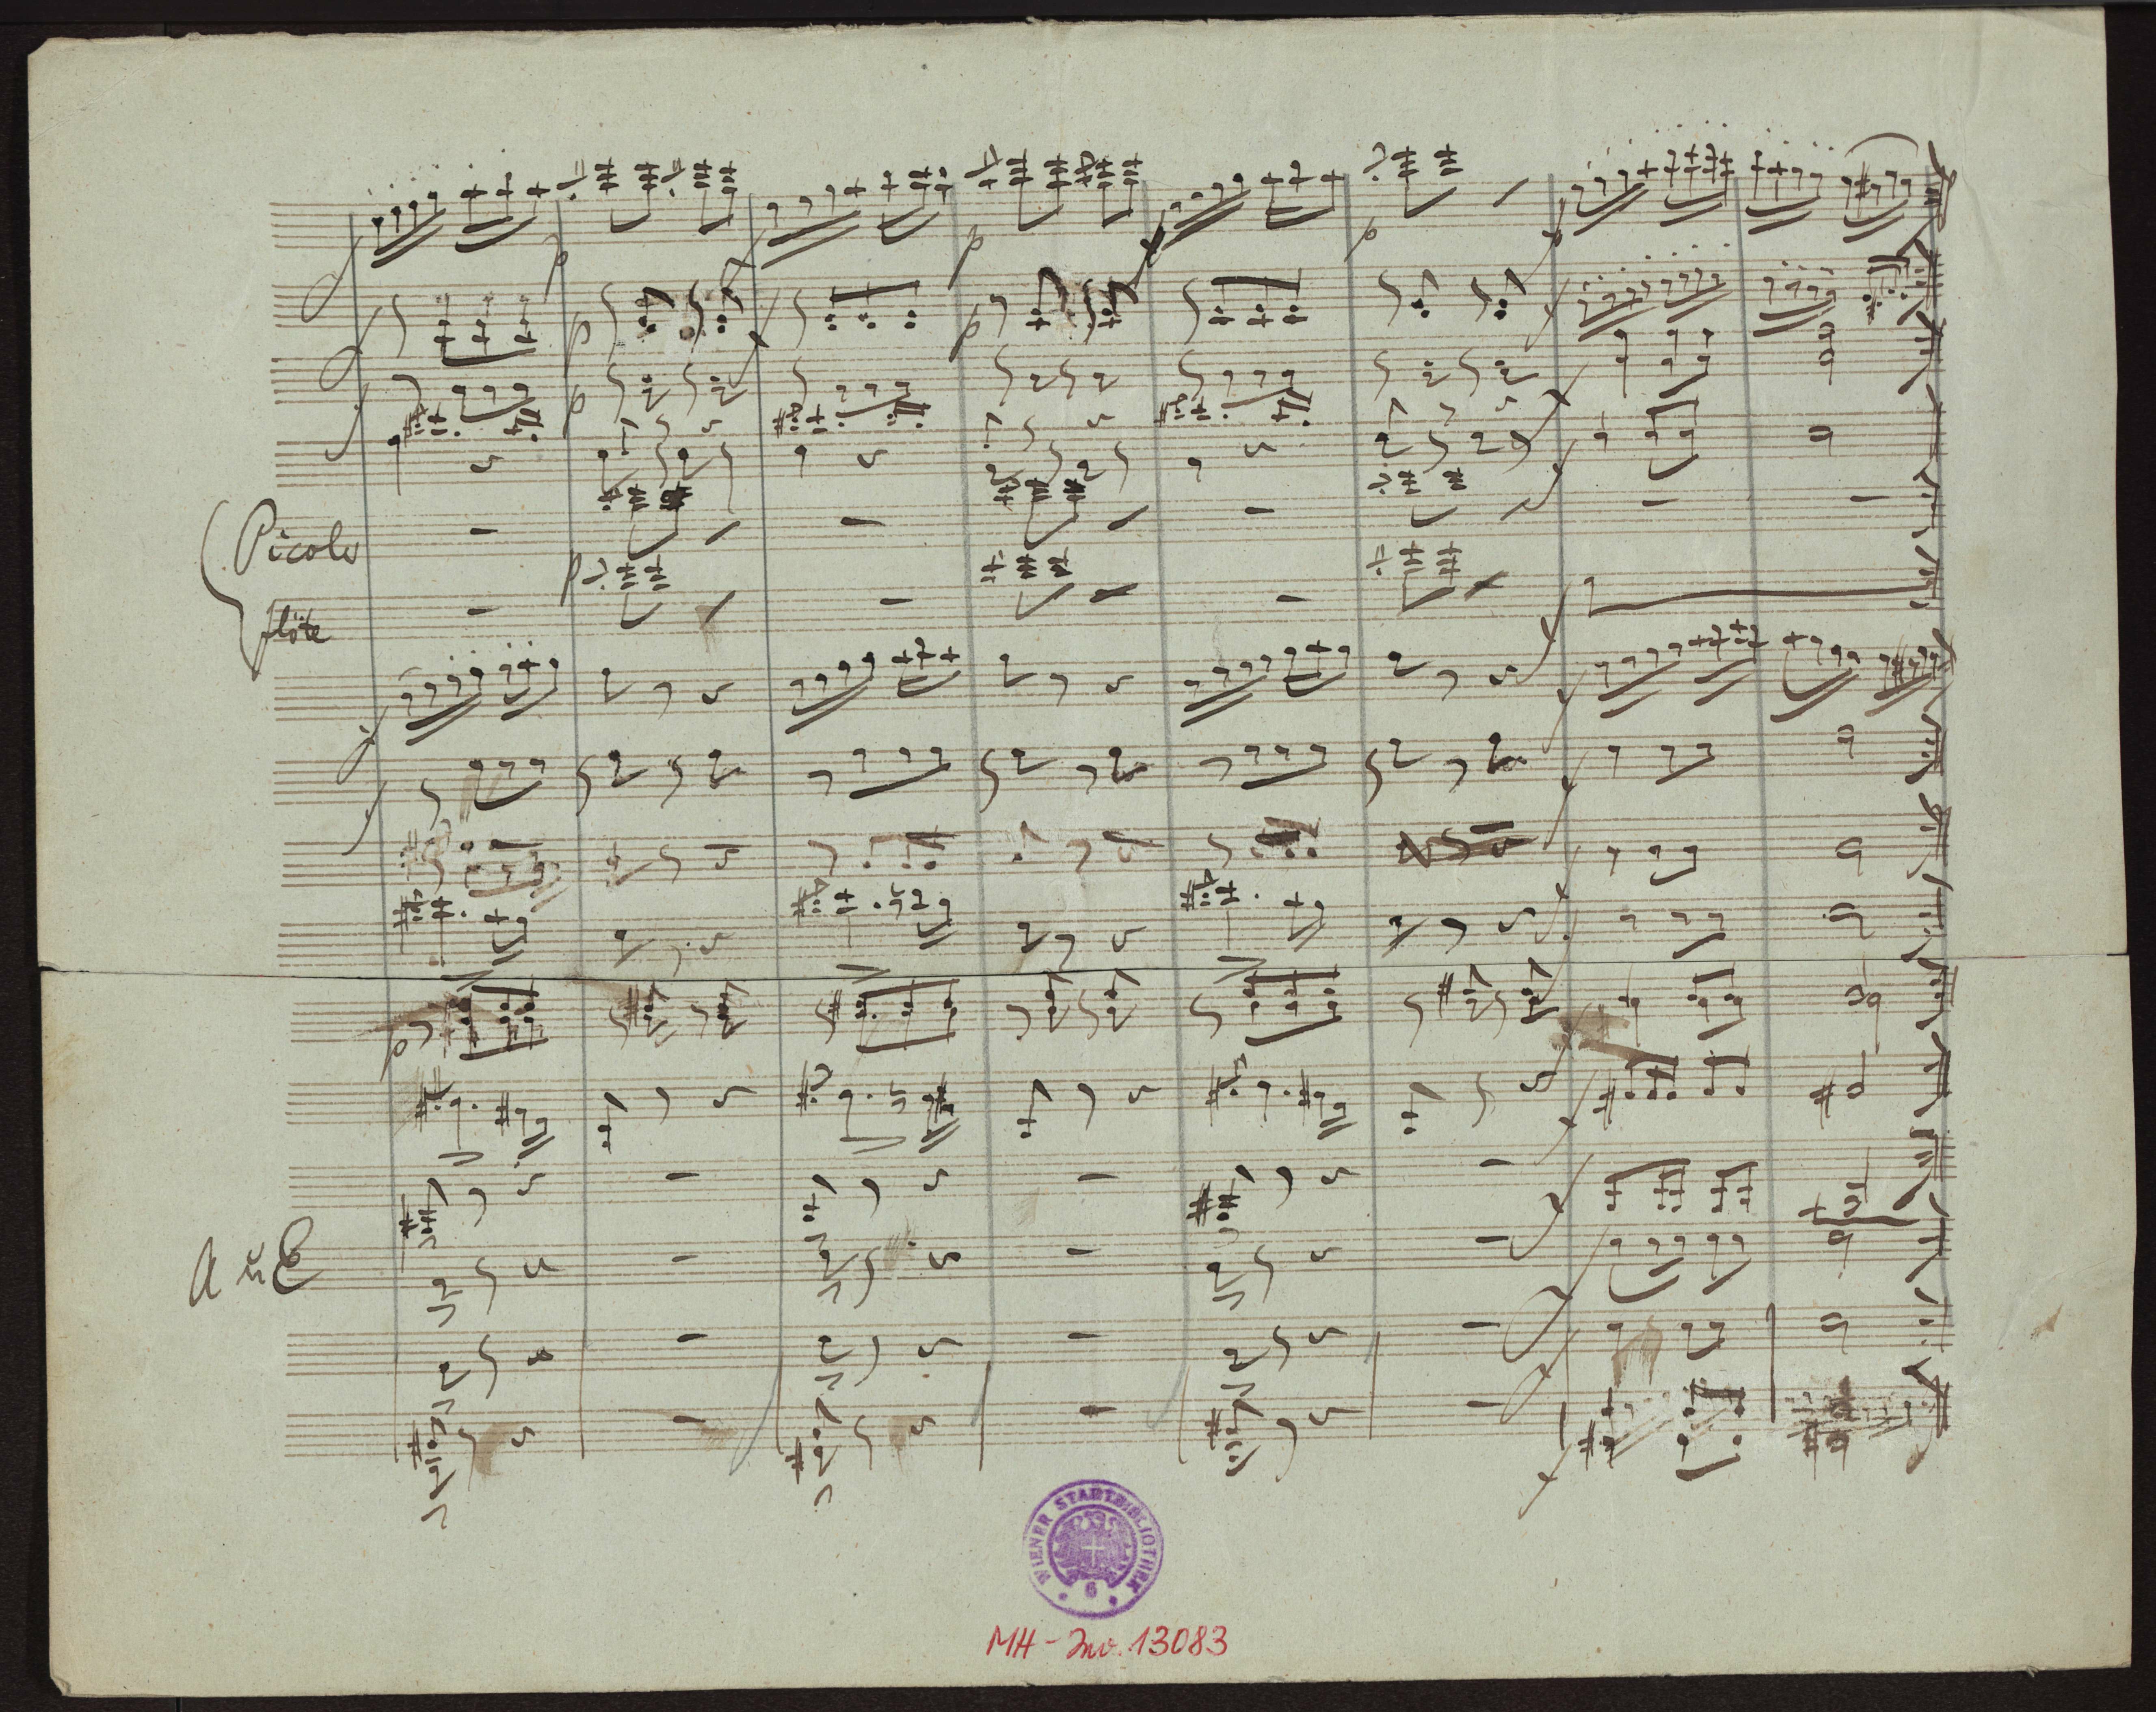 Picolo
flöte
A u E
WIENER STADTBIBLIOTHEK
6
MH-Inv. 13083